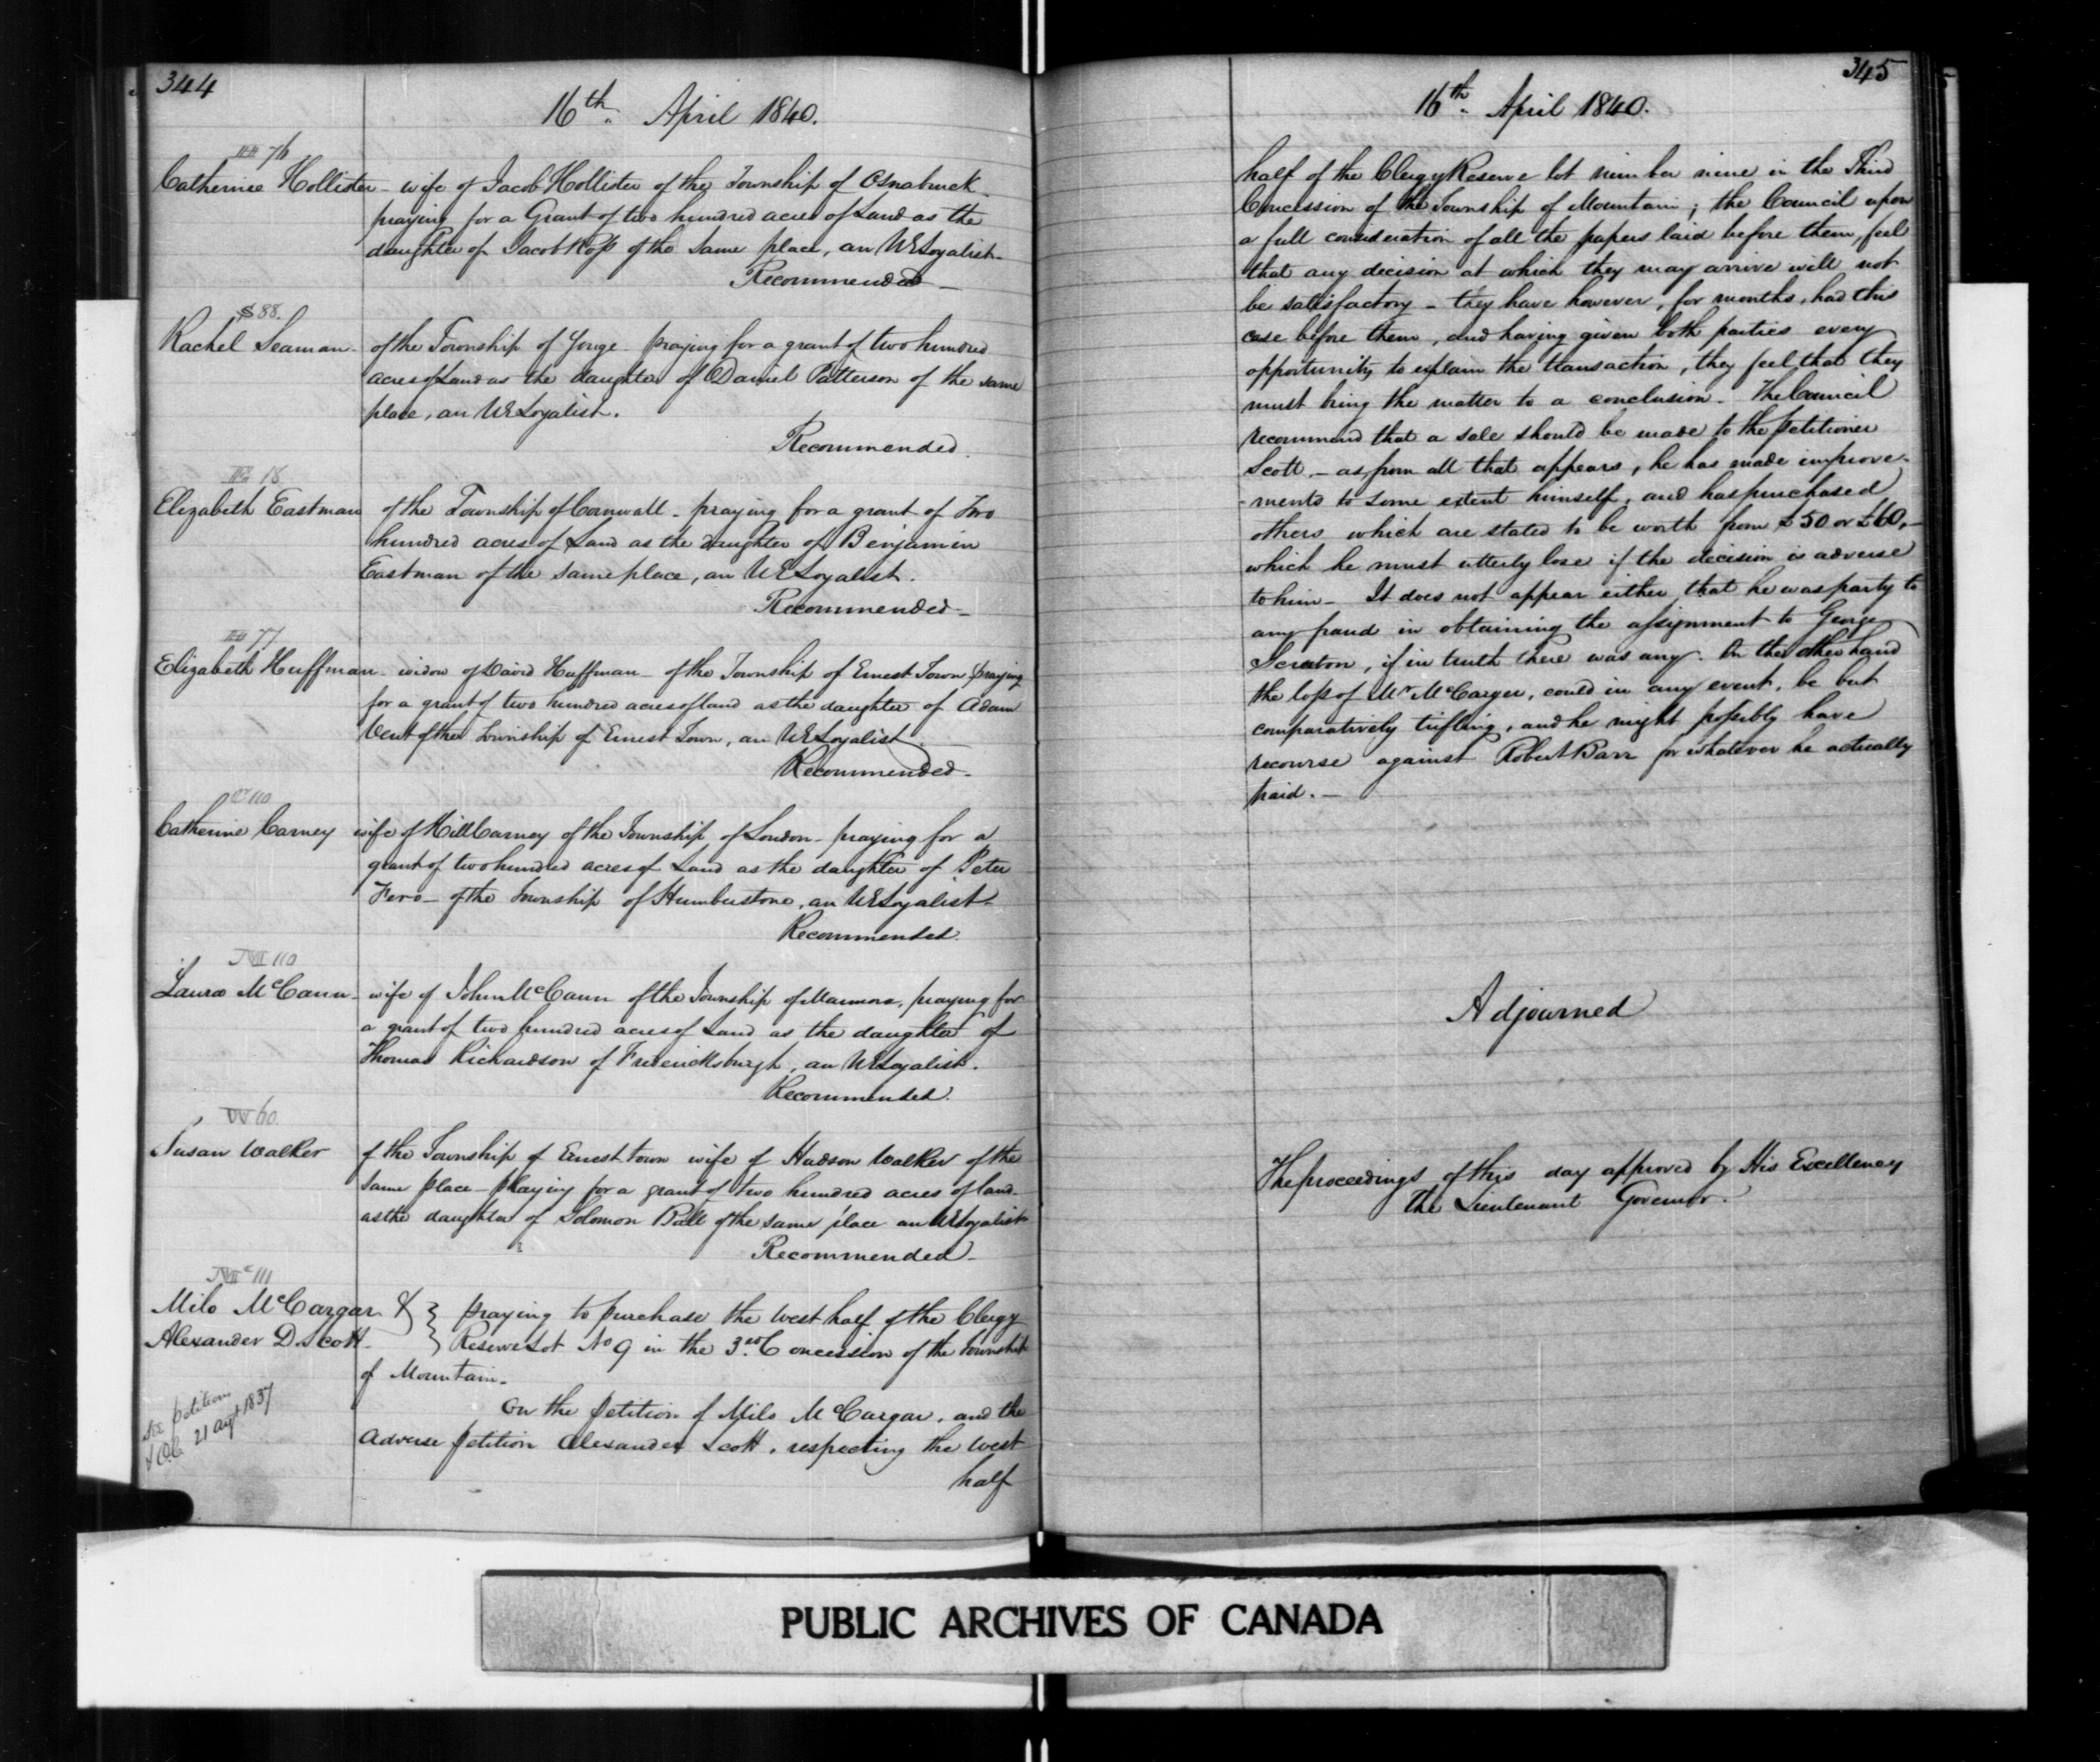 344
16th April 1840.
H 76
Catherine Hollister - wife of Jacob Hollister of the Township of Osnabruck
praying for a Grant of two hundred acres of Land as the
daughter of Jacob Ross of the same place, an UELoyalist -
Recommended -
S 88.
Rachel Seaman - of the Township of Yonge - praying for a grant of two hundred
acres of Land as the daughter of Daniel Patterson of the same
place, an UELoyalist.
Recommended.
E 18
Elizabeth Eastman of the Township of Cornwall - praying for a grant of Two
hundred acres of Land as the daughter of Benjamin
Eastman of the same place, an UELoyalist.
Recommended -
H 77.
Elizabeth Huffman - widow of David Huffman - of the Township of Ernest Town praying
for a grant of two hundred acres of land as the daughter of Adam
Vent of the Township of Ernest Town, an UELoyalist.
Recommended -
C 110
Catherine Carney wife of Hill Carney of the Township of London - praying for a
grant of two hundred acres of Land as the daughter of Peter
Fero - of the Township of Humberstone, an UELoyalist -
Recommended.
M 110
Laura McCann - wife of John McCann of the Township of Marmora, praying for
a grant of two hundred acres of Land as the daughter of
Thomas Richardson of Fredericksburgh, an UELoyalist.
Recommended.
W 60.
Susan Walker of the Township of Ernest town wife of Hudson Walker of the
same place - praying for a grant of two hundred acres of land -
as the daughter of Solomon Ball of the same place an UELoyalist
Recommended -
Mc 111
Milo McCargar & } praying to purchase the West half of the Clergy
Alexander D. Scott - } Reserve Lot No 9 in the 3rd Concession of the Township
of Mountain -
On the petition of Milo McCargar, and the
See petition
& O.C. 21 Augt 1837
adverse petition Alexander Scott, respecting the West
half
345
16th April 1840.
half of the Clergy Reserve lot number nine in the Third
Concession of the Township of Mountain; the Council upon
a full consideration of all the papers laid before them, feel
that any decision at which they may arrive will not
be satisfactory - they have however, for months, had this
case before them, and having given both parties every
opportunity to explain the transaction, they feel that they
must bring the matter to a conclusion - The Council
recommend that a sale should be made to the petitioner
Scott - as from all that appears, he has made improve-
-ments to some extent himself, and has purchased
others which are stated to be worth from £50 or £60, -
which he must utterly lose if the decision is adverse
to him - It does not appear either that he was party to
any fraud in obtaining the assignment to George
, if in truth there was any. On the other hand
the loss of Mr McCarger, could in any event, be but
comparatively trifling, and he might possibly have
recourse against Robert Barr for whatever he actually
paid. -
Adjourned
The proceedings of this day approved by His Excellency
the Lieutenant Governor.
PUBLIC ARCHIVES OF CANADA